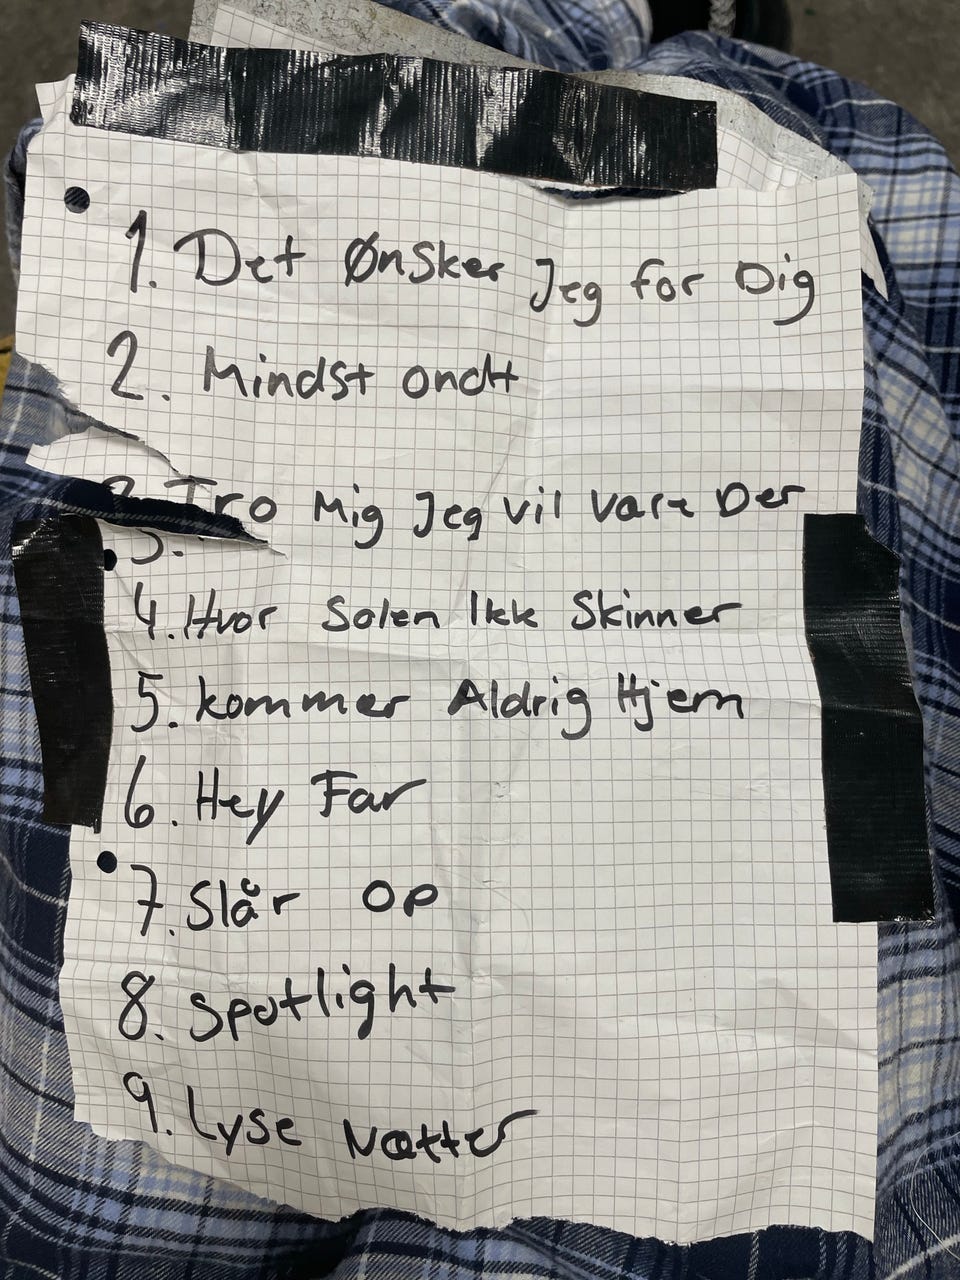 1. Det Ønsker Jeg for Dig
2. Mindst ondt
3. Tro Mig Jeg vil være Der
4. Hvor Solen Ikk Skinner
5. kommer Aldrig Hjem
6. Hey Far
7. Slår Op
8. Spotlight
9. Lyse Nætter